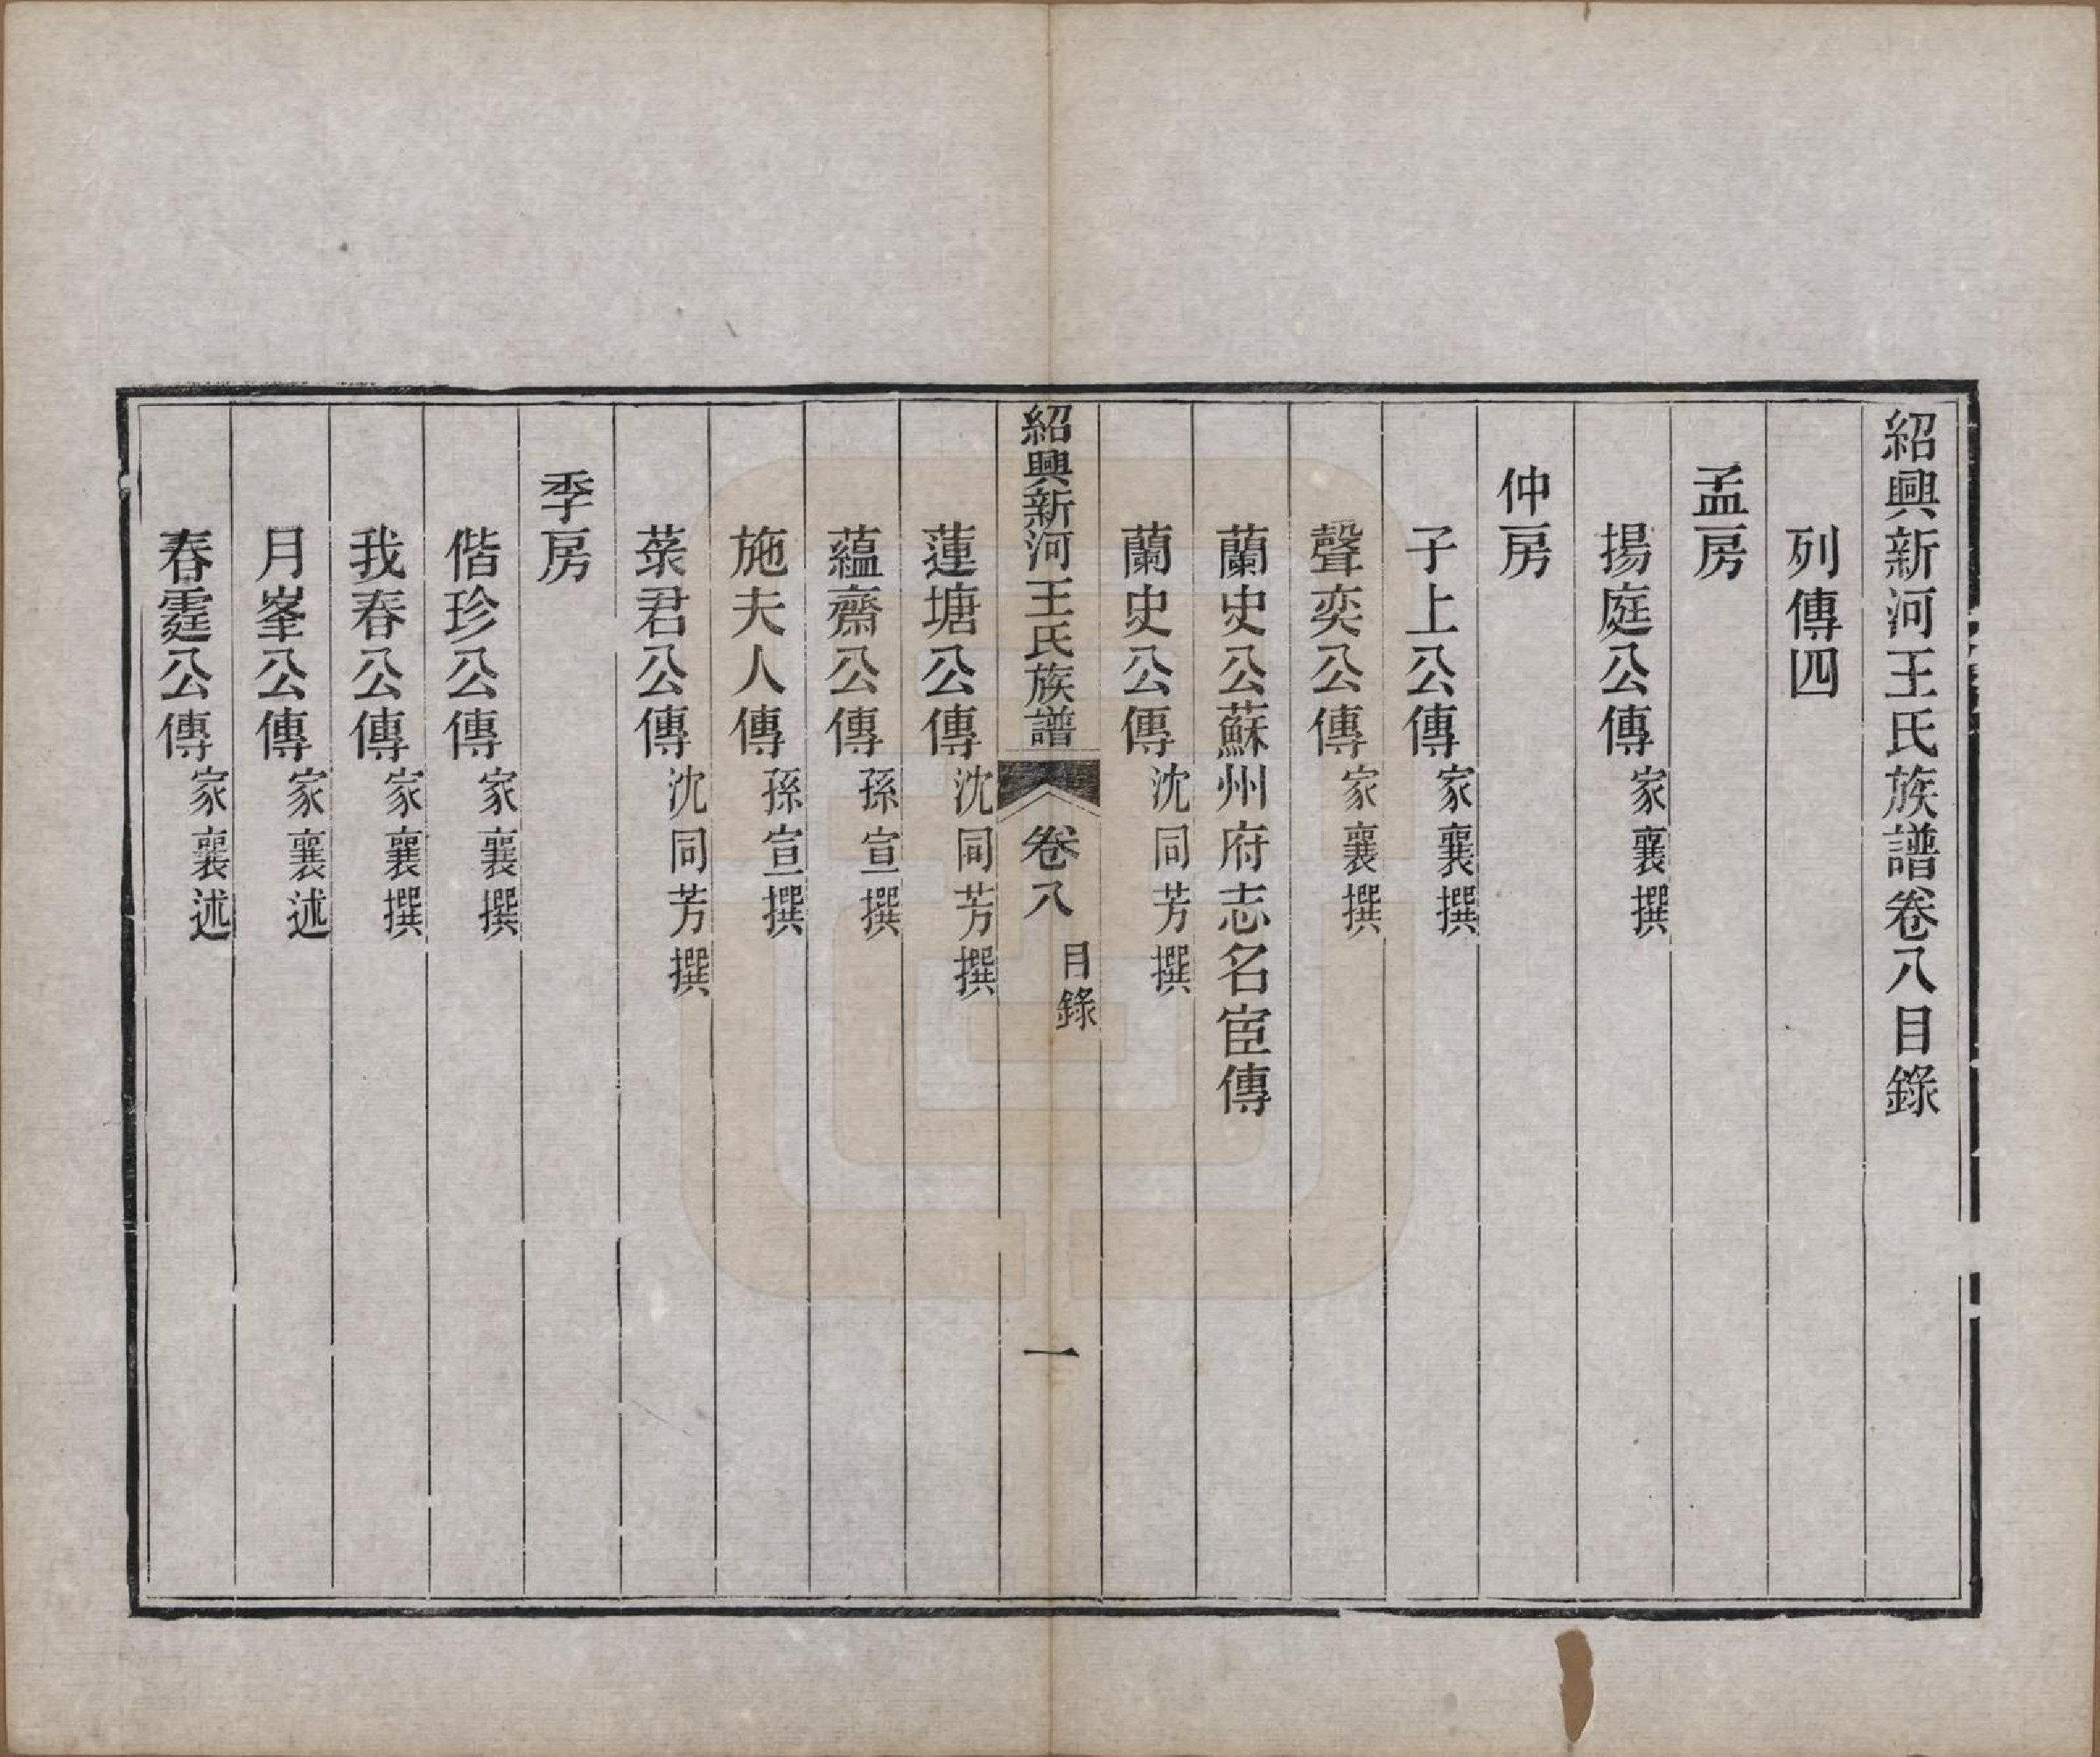 紹興新河王氏族譜卷八目錄
列傳四
孟房
揚庭公傳家襄撰
仲房
子上公傳家襄撰
聲奕公傳家襄撰
蘭史公蘇州府志名宦傳
蘭史公傳沈同芳撰
紹興新河王氏族譜 卷八 目錄 一
蓮塘公傳沈同芳撰
蘊齋公傳孫宣撰
施夫人傳孫宣撰
菉君公傳沈同芳撰
季房
偕珍公傳家襄撰
我春公傳家襄撰
月峯公傳家襄述
春霆公傳家襄述